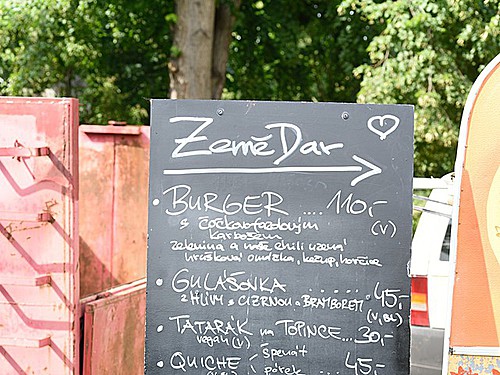 ZeměDar
BURGER .... 110,-
s čočkovofazolovým (V)
karbošem
zelenina a naše chilli uzená
hrušková omáčka, kečup, hořčice
GULÁŠOVKA .... 45,-
z HLÍVY s CIZRNOU a BRAMBOREM (V, BL)
TATARÁK na TOPINCE... 30,-
vegan (V)
QUICHE špenát 45,-
pórek